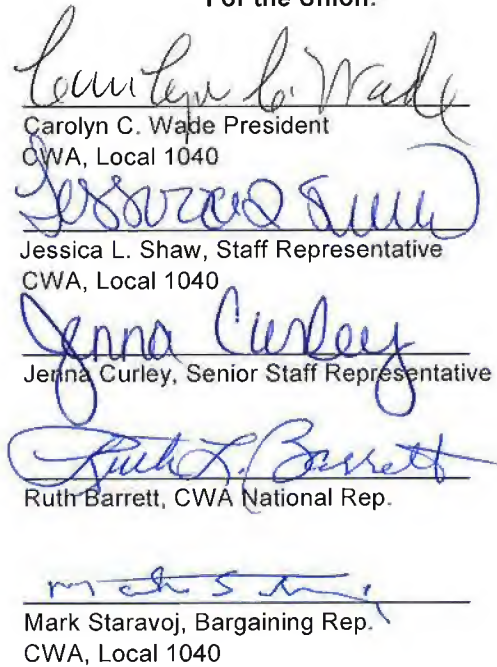 For the Union:
Carolyn C. Wade
Carolyn C. Wade President
CWA, Local 1040
Jessica L. Shaw, Staff Representative
CWA, Local 1040
Jenna Curley
Jenna Curley, Senior Staff Representative
Ruth L. Barrett
Ruth Barrett, CWA National Rep.
Mark Staravoj, Bargaining Rep.
CWA, Local 1040